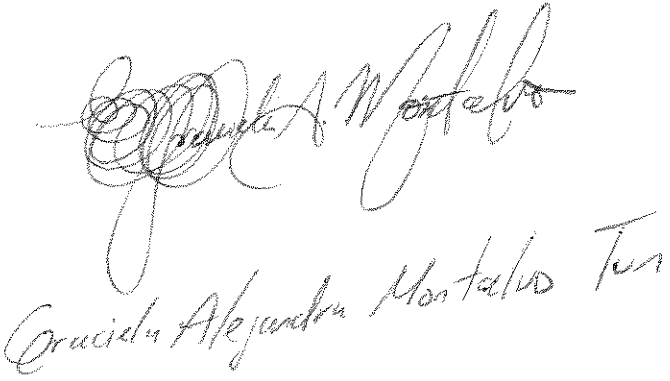 Graciela A. Montalvo
Graciela Alejandra Montalvo Tun